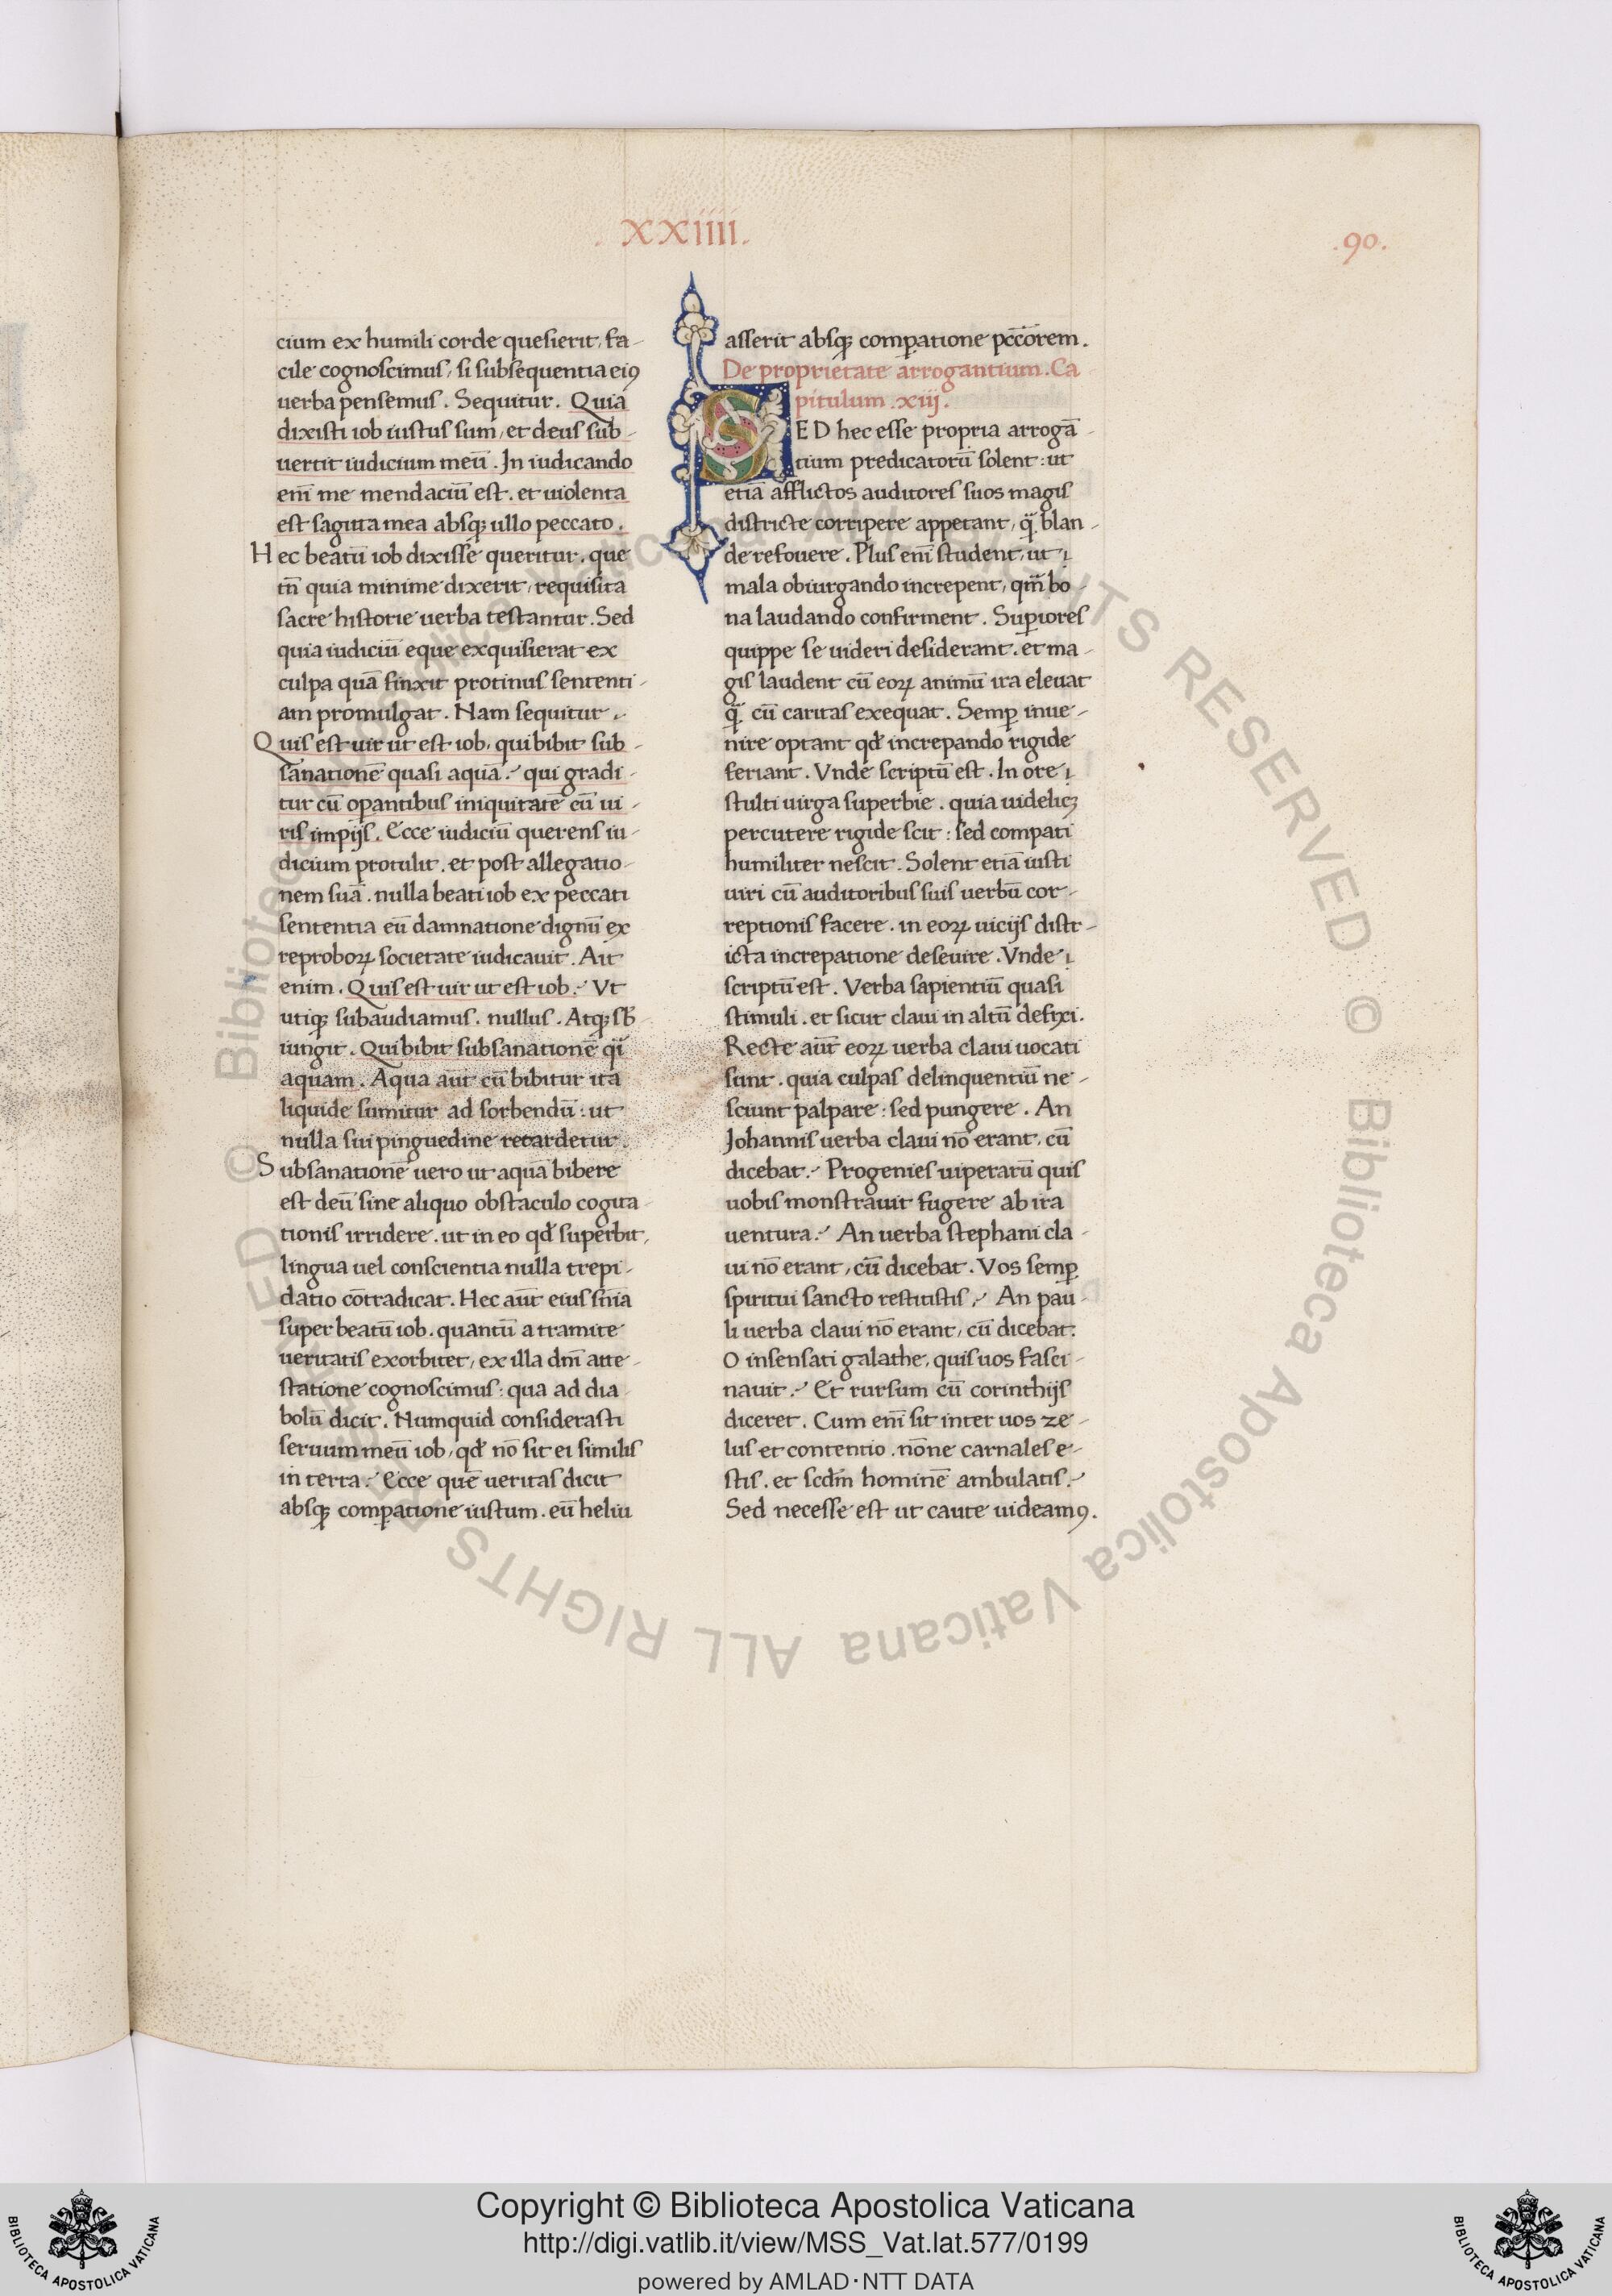 .XXIIII.
.90.
cium ex humili corde quesierit, fa-
cile cognoscimus, si subsequentia eiꝯ
uerba pensemus. Sequitur. Quia
dixisti iob iustus sum, et deus sub-
uertit iudicium meū. In iudicando
enī me mendaciū est. et uiolenta
est sagitta mea absqꝫ ullo peccato.
Hec beatū iob dixisse queritur. que
tn̄ quia minime dixerit, requisita
sacre historie uerba testantur. Sed
quia iudiciū eque exquisierat ex
culpa quā finxit protinus sententi-
am promulgat. Nam sequitur.
Quis est uir ut est iob, qui bibit sub-
sanationē quasi aquā: qui gradi-
tur cū oꝑantibus iniquitatē cū ui-
ris impijs. Ecce iudiciū querens iu-
dicium protulit. et post allegatio-
nem suā. nulla beati iob ex peccati
sententia eū damnatione dignū ex
reproboꝝ societate iudicauit. Ait
enim. Quis est uir ut est iob: Vt
utiqꝫ subaudiamus. nullus. Atqꝫ sƀ-
iungit. Qui bibit subsanationē qi̅
aquam. Aqua aūt cū bibitur ita
liquide sumitur ad sorbendū: ut
nulla sui pinguedine retardetur.
Subsanationē uero ut aquā bibere
est deū sine aliquo obstaculo cogita-
tionis irridere. ut in eo qđ superbit,
lingua uel conscientia nulla trepi-
datio cōtradicat. Hec aūt eius sn̄ia
super beatū iob. quantū a tramite
ueritatis exorbitet, ex illa dn̄i atte-
statione cognoscimus: qua ad dia-
bolū dicit. Numquid considerasti
seruum meū iob, qđ nō sit ei similis
in terra: Ecce quē ueritas dicit
absqꝫ comꝑatione iustum. eū heliu
asserit absqꝫ comꝑatione pcc̄orem.
De proprietate arrogantium. Ca-
pitulum .xiij.
SED hec esse propria arrogā-
tium predicatorū solent: ut
etiā afflictos auditores suos magis
districte corripere appetant, q̄ blan-
de refouere. Plus enī student, ut
mala obiurgando increpent, qm̄ bo-
na laudando confirment. Suꝑiores
quippe se uideri desiderant. et ma-
gis laudent cū eoꝝ animū ira eleuat
q̄ cū caritas exequat. Semꝑ inue-
nire optant qđ increpando rigide
feriant. Vnde scriptū est. In ore
stulti uirga superbie. quia uidelicꝫ
percutere rigide scit: sed compati
humiliter nescit. Solent etiā iusti
uiri cū auditoribus suis uerbū cor-
reptionis facere. in eoꝝ uicijs distr-
icta increpatione deseuire. Vnde
scriptū est. Verba sapientiū quasi
stimuli. et sicut claui in altū defixi.
Recte aūt eoꝝ uerba claui uocati
sunt. quia culpas delinquentiū ne-
sciunt palpare: sed pungere. An
Johannis uerba claui nō erant, cū
dicebat: Progenies uiperarū quis
uobis monstrauit fugere ab ira
uentura: An uerba stephani cla-
ui nō erant, cū dicebat. Vos semꝑ
spiritui sancto restitistis: An pau-
li uerba claui nō erant, cū dicebat:
O insensati galathe, quis uos fasci-
nauit: Et rursum cū corinthijs
diceret. Cum enī sit inter uos ze-
lus et contentio. nōne carnales e-
stis. et scdm̄ hominē ambulatis:
Sed necesse est ut caute uideamꝯ.
© Biblioteca Apostolica Vaticana ALL RIGHTS RESERVED © Biblioteca Apostolica Vaticana ALL RIGHTS RESERVED
Copyright © Biblioteca Apostolica Vaticana
http://digi.vatlib.it/view/MSS_Vat.lat.577/0199
powered by AMLAD·NTT DATA
BIBLIOTECA APOSTOLICA VATICANA
BIBLIOTECA APOSTOLICA VATICANA